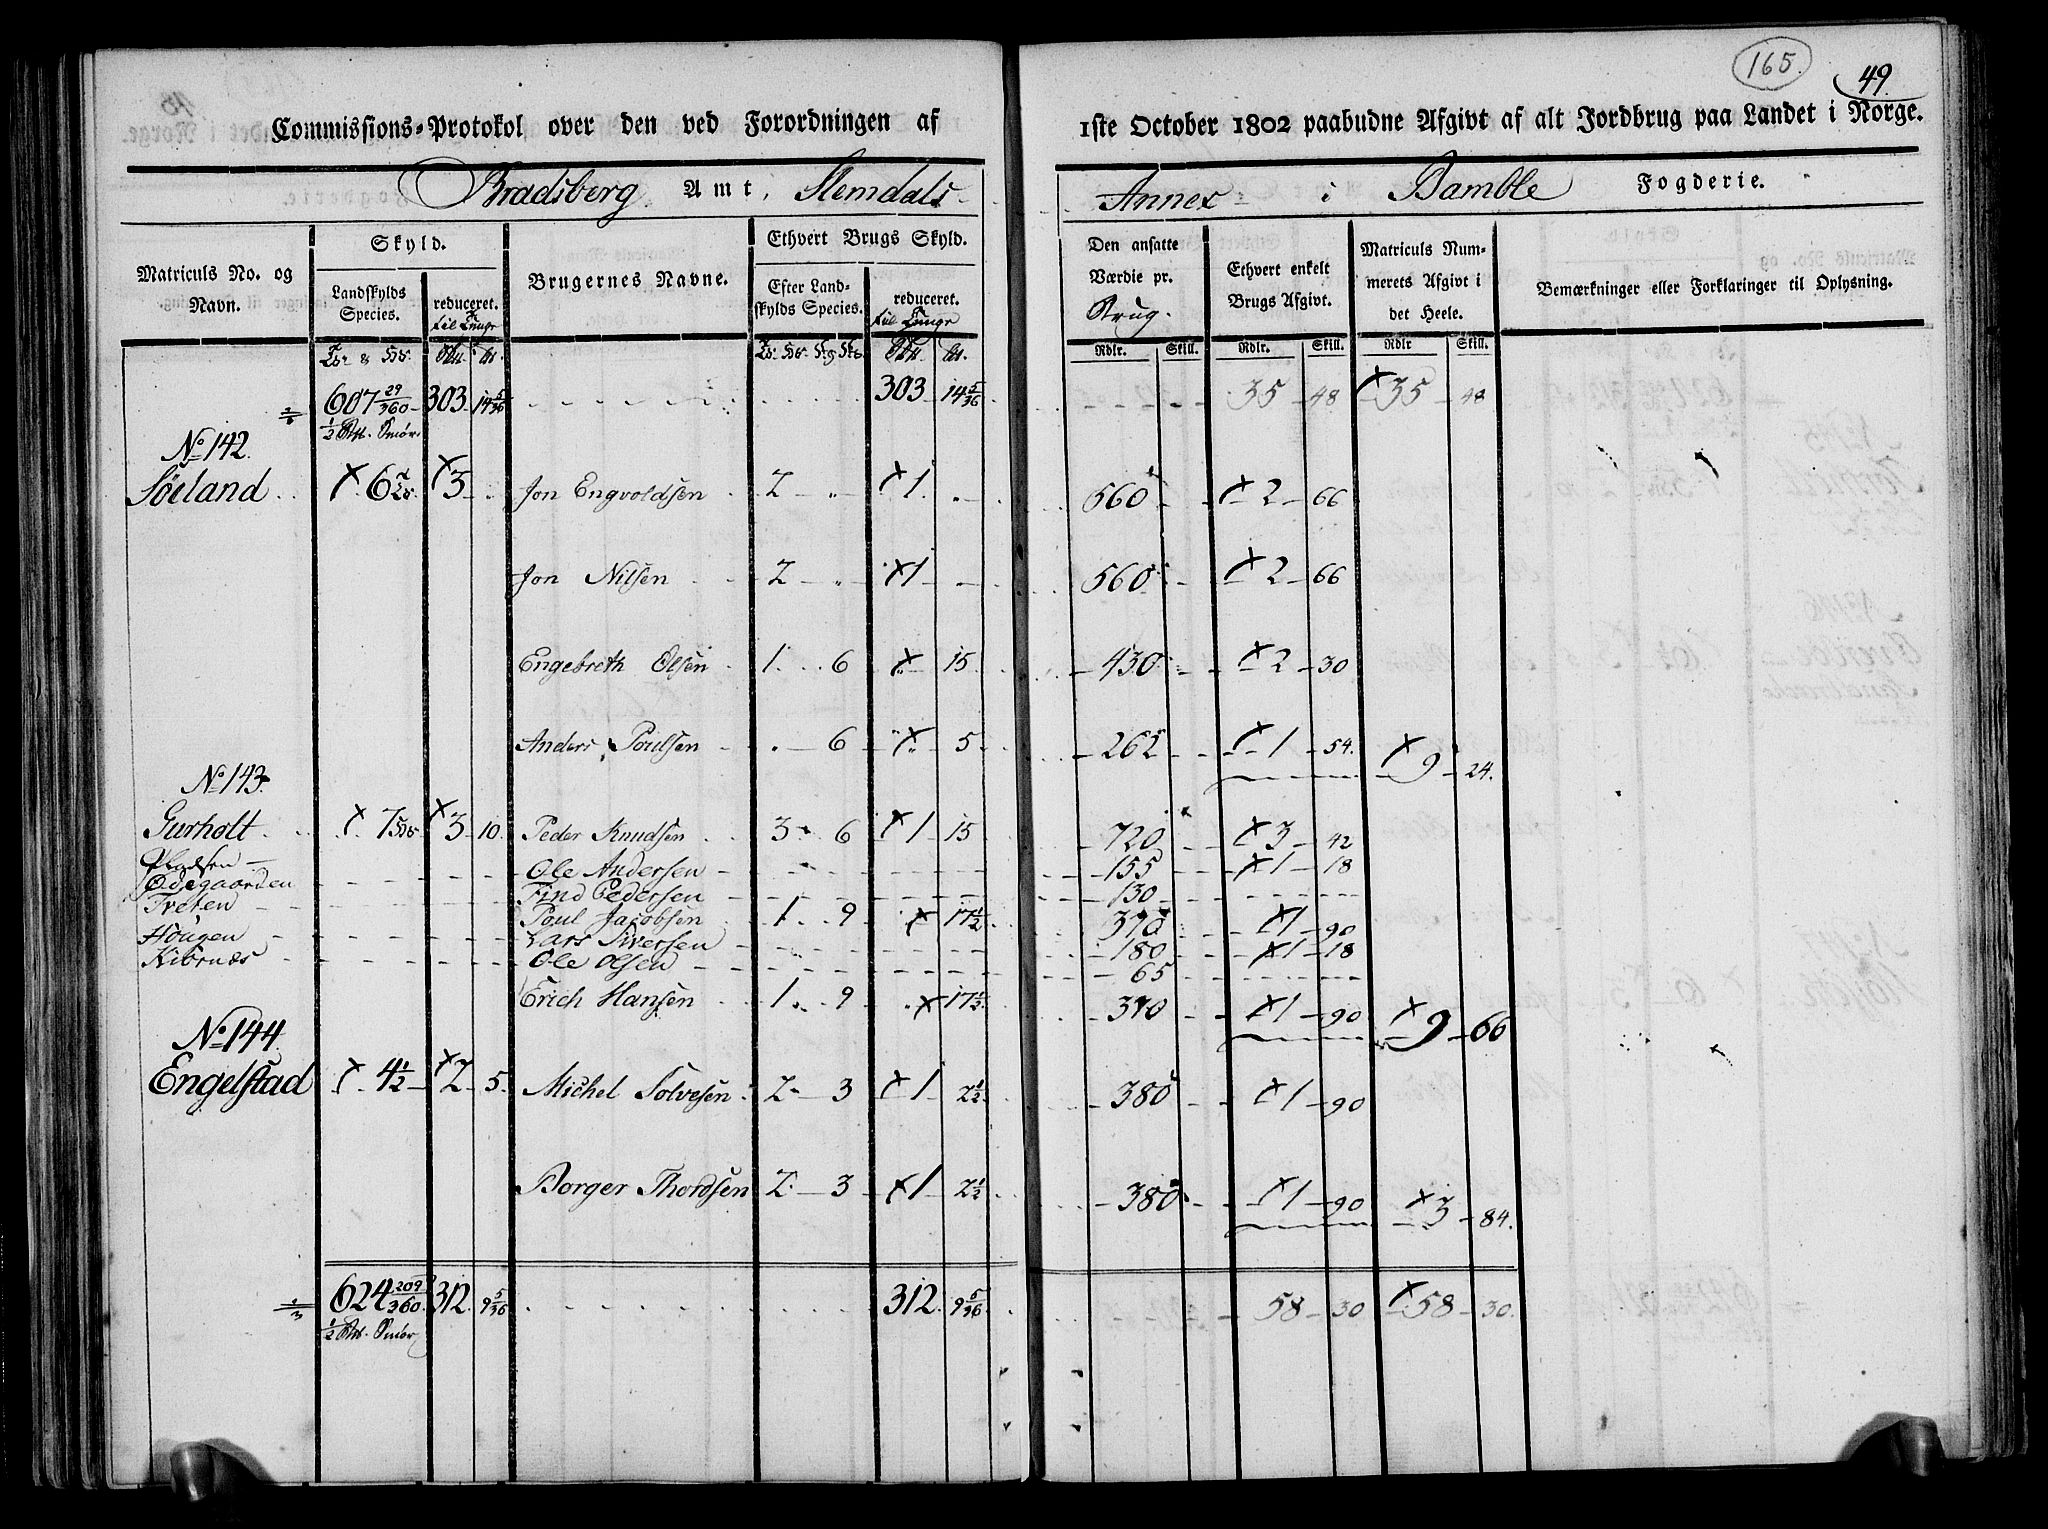 165.
49.
Commissions-Protokol over den ved Forordningen af 1ste October 1802 paabudne Afgivt af alt Jordbrug paa Landet i Norge.
Bradsberg Amt, Slemdals Annex i Bamble Fogderie.
Matriculs No. og Navn. Skyld. Brugernes Navne. Ethvert Brugs Skyld. Den ansatte Værdie pr. Brug. Ethvert enkelt Brugs Afgivt. Matriculs Nummerets Afgivt i det Heele. Bemærkninger eller Forklaringer til Oplysning.
Landskylds Species. reduceret. til Tunge Efter Landskylds Species. reduceret. til Tunge
Rdlr. Skill. Rdlr. Skill. Rdlr Skill.
607 29/360 303 14 5/36 303 14 5/36 35 48 35 48
1/2 Smør.
No 142.
Søeland 6 3 Jon Engvoldsen 2 1 560 2 66
Jon Nilsen 2 1 560 2 66
Engebreth Olsen 1 6 15 430 2 30
Anders Poulsen 6 5 262 1 54. 9 24.
No 143.
Gurholt 7 3 10 Peder Knudsen 3 6 1 15 720 3 42
Pladsen Ole Andersen 155 1 18
Ødegaarden Find Pedersen 130
Tveten Poul Jacobsen 1 9 17 1/2 370 1 90
Hougen Lars Siversen 180 1 18
Kiørnæs Ole Olsen 65
Erich Hansen 1 9 17 1/2 370 1 90 9 66
No 144.
Engelstad 4 1/2 2 5. Michel Solvesen 2 3 1 2 1/2 380 1 90
Borger Thordsen 2 3 1 2 1/2 380 1 90 3 84.
624 209/360 312 9 5/36 312 9 5/36 58 30 58 30.
1/2 Smør